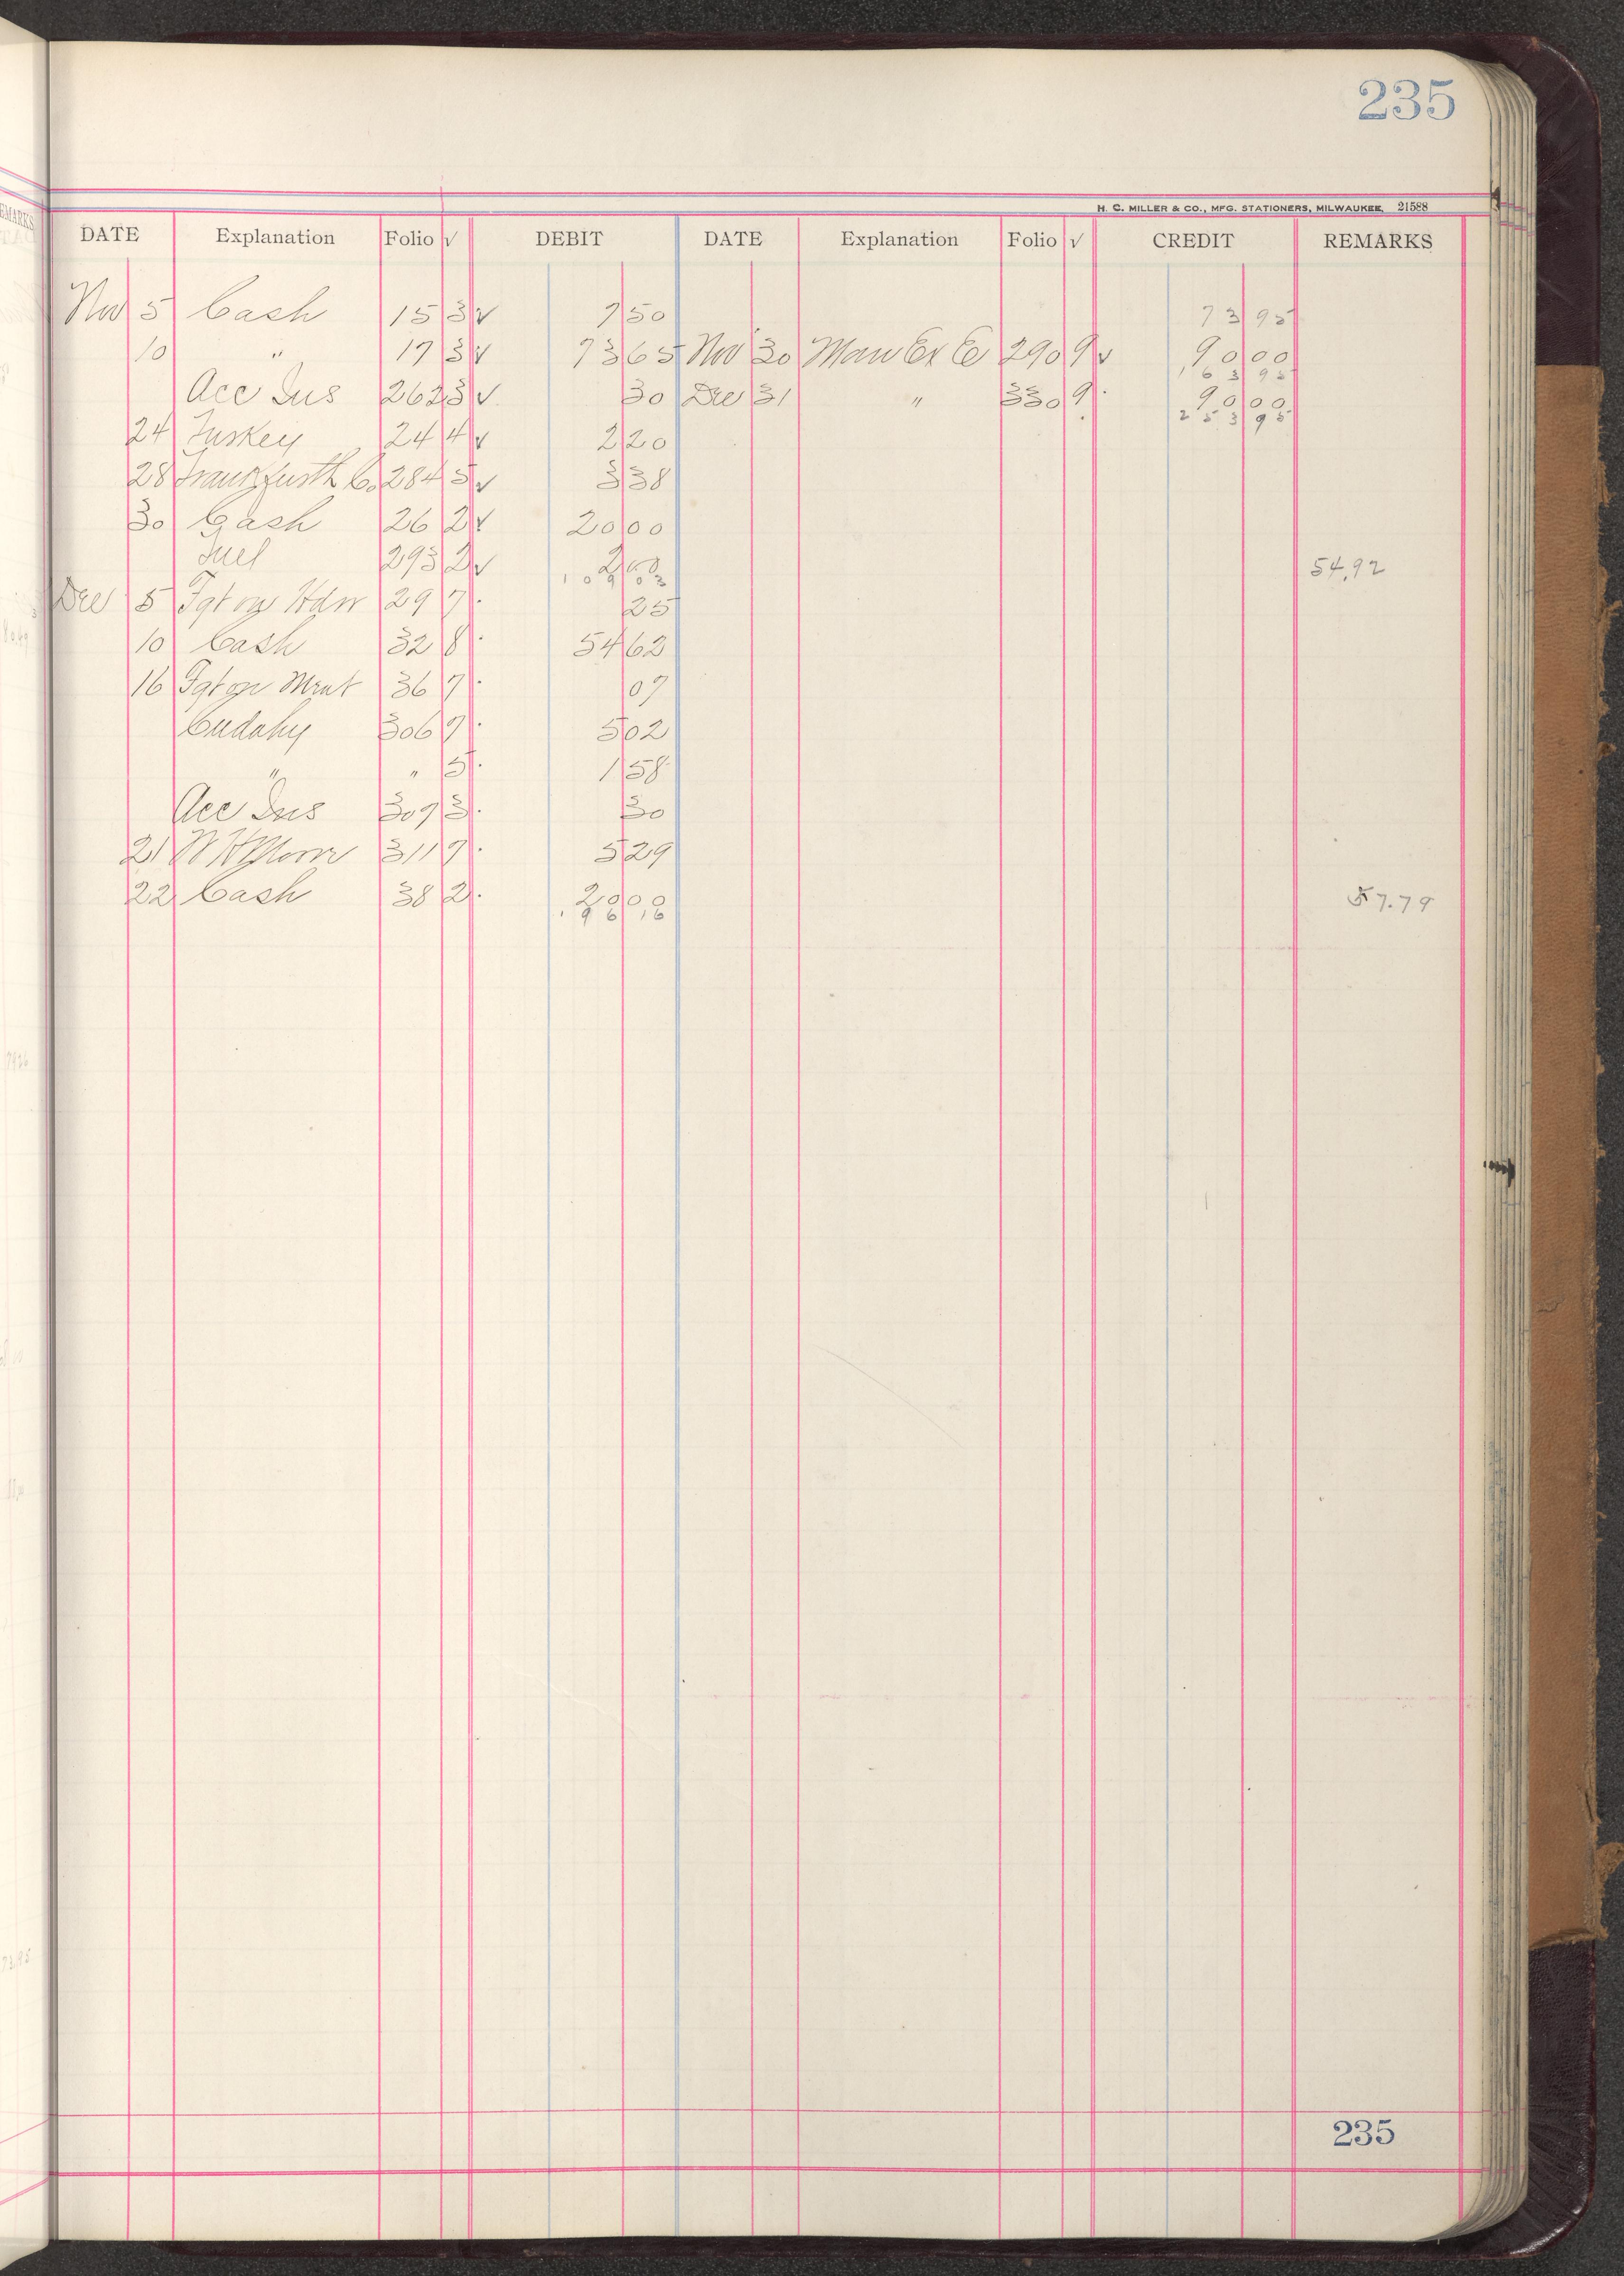 235
H. C. MILLER & CO., MFG. STATIONERS, MILWAUKEE, 21588
DATE Explanation Folio √ DEBIT DATE Explanation Folio √ CREDIT REMARKS
Nov 5 Cash 15 3 √ 7 50 73 95
10 " 17 3 √ 73 65 Nov 30 Man Ex 290 9 √ 90 00
163 95
Acc Ins 262 3 √ 30 Dec 31 " 330 9 90 00
253 95
24 Turkey 24 4 √ 2 20
28 Frankfurth 284 5 √ 3 38
30 Cash 26 2 √ 20 00
Fuel 293 2 √ 2 00 54.92
109 03
Dec 5 Fgt on Hdw 29 7 25
10 Cash 32 8 54 62
16 Fgt on 36 7 07
Cudahy 306 7 5 02
" " 5 1 58
Acc Ins 309 3 30
21 311 7 5 29
22 Cash 38 2 20 00 57.79
196 16
235